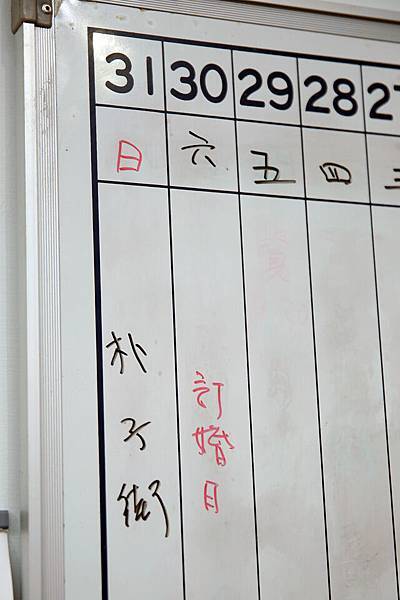 31 30 29 28 27
日 六 五 四 三
朴子街
訂婚日